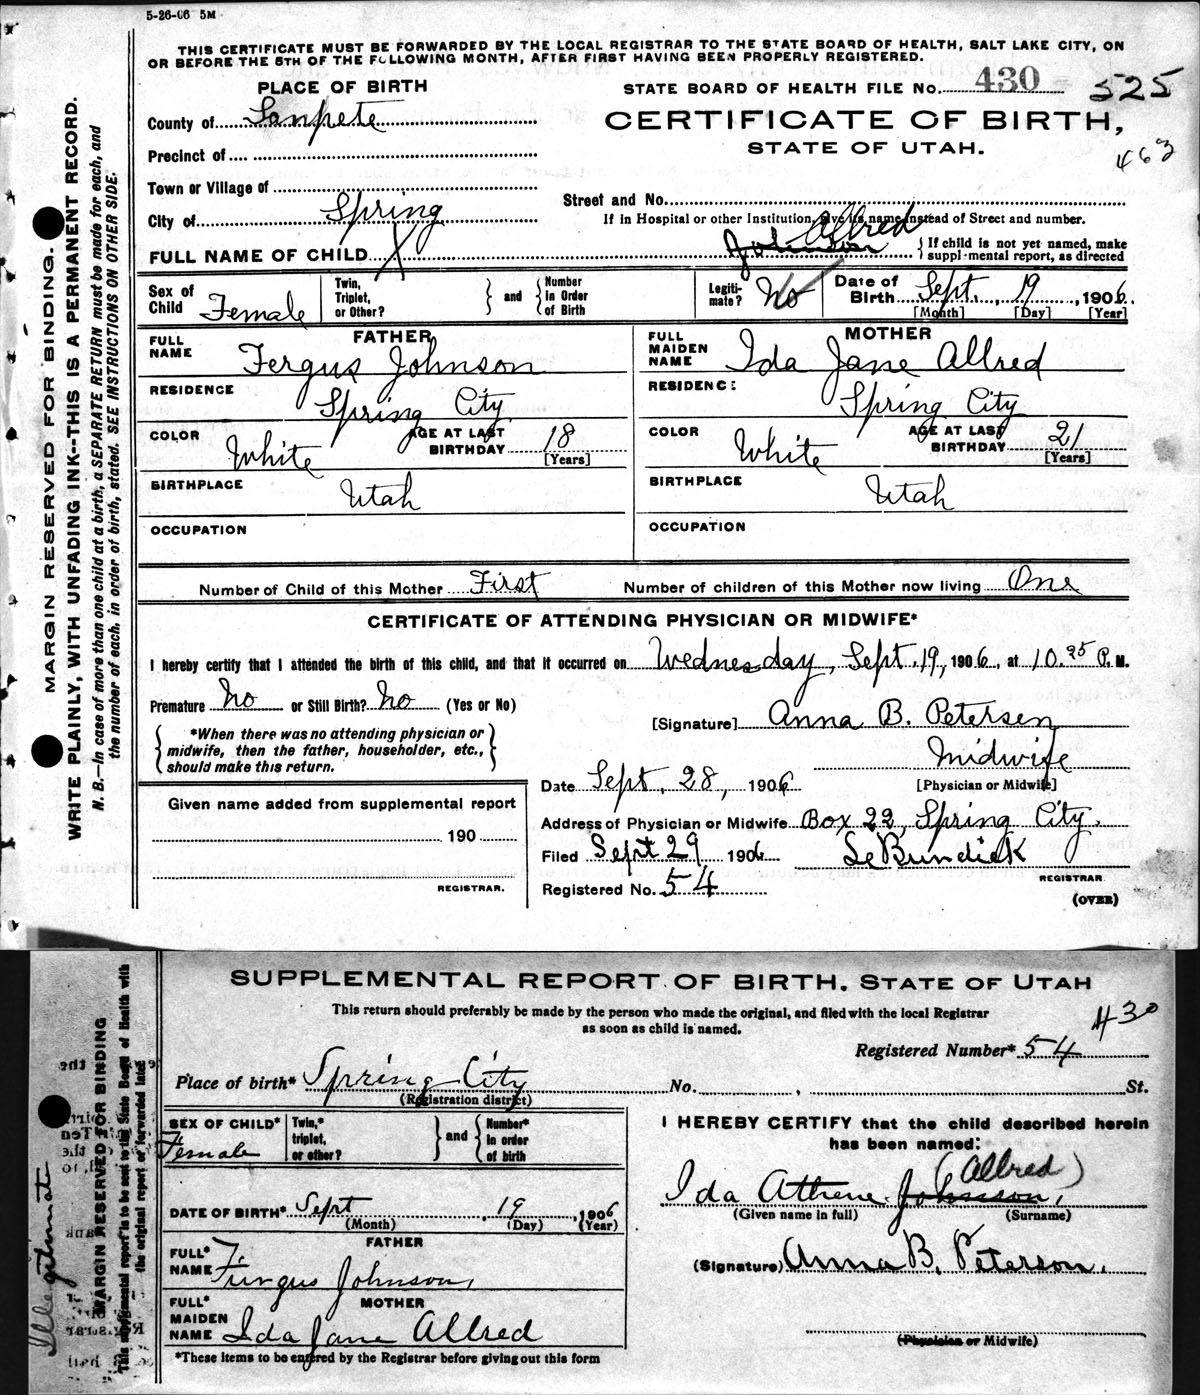 5-26-06 5M
THIS CERTIFICATE MUST BE FORWARDED BY THE LOCAL REGISTRAR TO THE STATE BOARD OF HEALTH, SALT LAKE CITY, ON
OR BEFORE THE 5TH OF THE FOLLOWING MONTH, AFTER FIRST HAVING BEEN PROPERLY REGISTERED.
PLACE OF BIRTH
STATE BOARD OF HEALTH FILE No. 430 525
County of Sanpete
CERTIFICATE OF BIRTH,
STATE OF UTAH.
463
Precinct of
Town or Village of
Street and No.
City of Spring
If in Hospital or other Institution, give its name instead of Street and number.
Allred
FULL NAME OF CHILD X Johnson { If child is not yet named, make
supplemental report, as directed
Sex of Child Female
Twin, Triplet, or Other? } and { Number in Order of Birth
Legitimate? No
Date of Birth Sept. 19, 1906.
[Month] [Day] [Year]
FATHER
FULL NAME Fergus Johnson
RESIDENCE Spring City
COLOR White
AGE AT LAST BIRTHDAY 18 [Years]
BIRTHPLACE Utah
OCCUPATION
MOTHER
FULL MAIDEN NAME Ida Jane Allred
RESIDENCE: Spring City
COLOR White
AGE AT LAST BIRTHDAY 21 [Years]
BIRTHPLACE Utah
OCCUPATION
Number of Child of this Mother First Number of children of this Mother now living One
CERTIFICATE OF ATTENDING PHYSICIAN OR MIDWIFE*
I hereby certify that I attended the birth of this child, and that it occurred on Wednesday, Sept. 19, 1906, at 10.25 P. M.
Premature No or Still Birth? No (Yes or No)
*When there was no attending physician or
midwife, then the father, householder, etc.,
should make this return.
[Signature] Anna B. Petersen
Midwife
[Physician or Midwife]
Date Sept. 28, 1906
Given name added from supplemental report
190
REGISTRAR.
Address of Physician or Midwife Box 22, Spring City.
Filed Sept 29, 1906
REGISTRAR
Registered No. 54
(OVER)
MARGIN RESERVED FOR BINDING.
WRITE PLAINLY, WITH UNFADING INK--THIS IS A PERMANENT RECORD.
N. B.—In case of more than one child at a birth, a SEPARATE RETURN must be made for each, and
the number of each, in order of birth, stated. SEE INSTRUCTIONS ON OTHER SIDE.
SUPPLEMENTAL REPORT OF BIRTH. STATE OF UTAH
This return should preferably be made by the person who made the original, and filed with the local Registrar
as soon as child is named.
430
Registered Number* 54
Place of birth* Spring City No. , St.
(Registration district)
SEX OF CHILD* Female
Twin,* triplet, or other? } and { Number* in order of birth
DATE OF BIRTH* Sept 19, 1906
(Month) (Day) (Year)
FATHER
FULL* NAME Furgus Johnson,
MOTHER
FULL* MAIDEN NAME Ida Jane Allred
*These items to be entered by the Registrar before giving out this form
I HEREBY CERTIFY that the child described herein
has been named:
(Allred)
Ida Athene Johnson,
(Given name in full) (Surname)
(Signature) Anna B. Peterson.
(Physician or Midwife)
Illegitimate
MARGIN RESERVED FOR BINDING
This supplemental report is to be sent to the State Board of Health with
the original report or forwarded later.